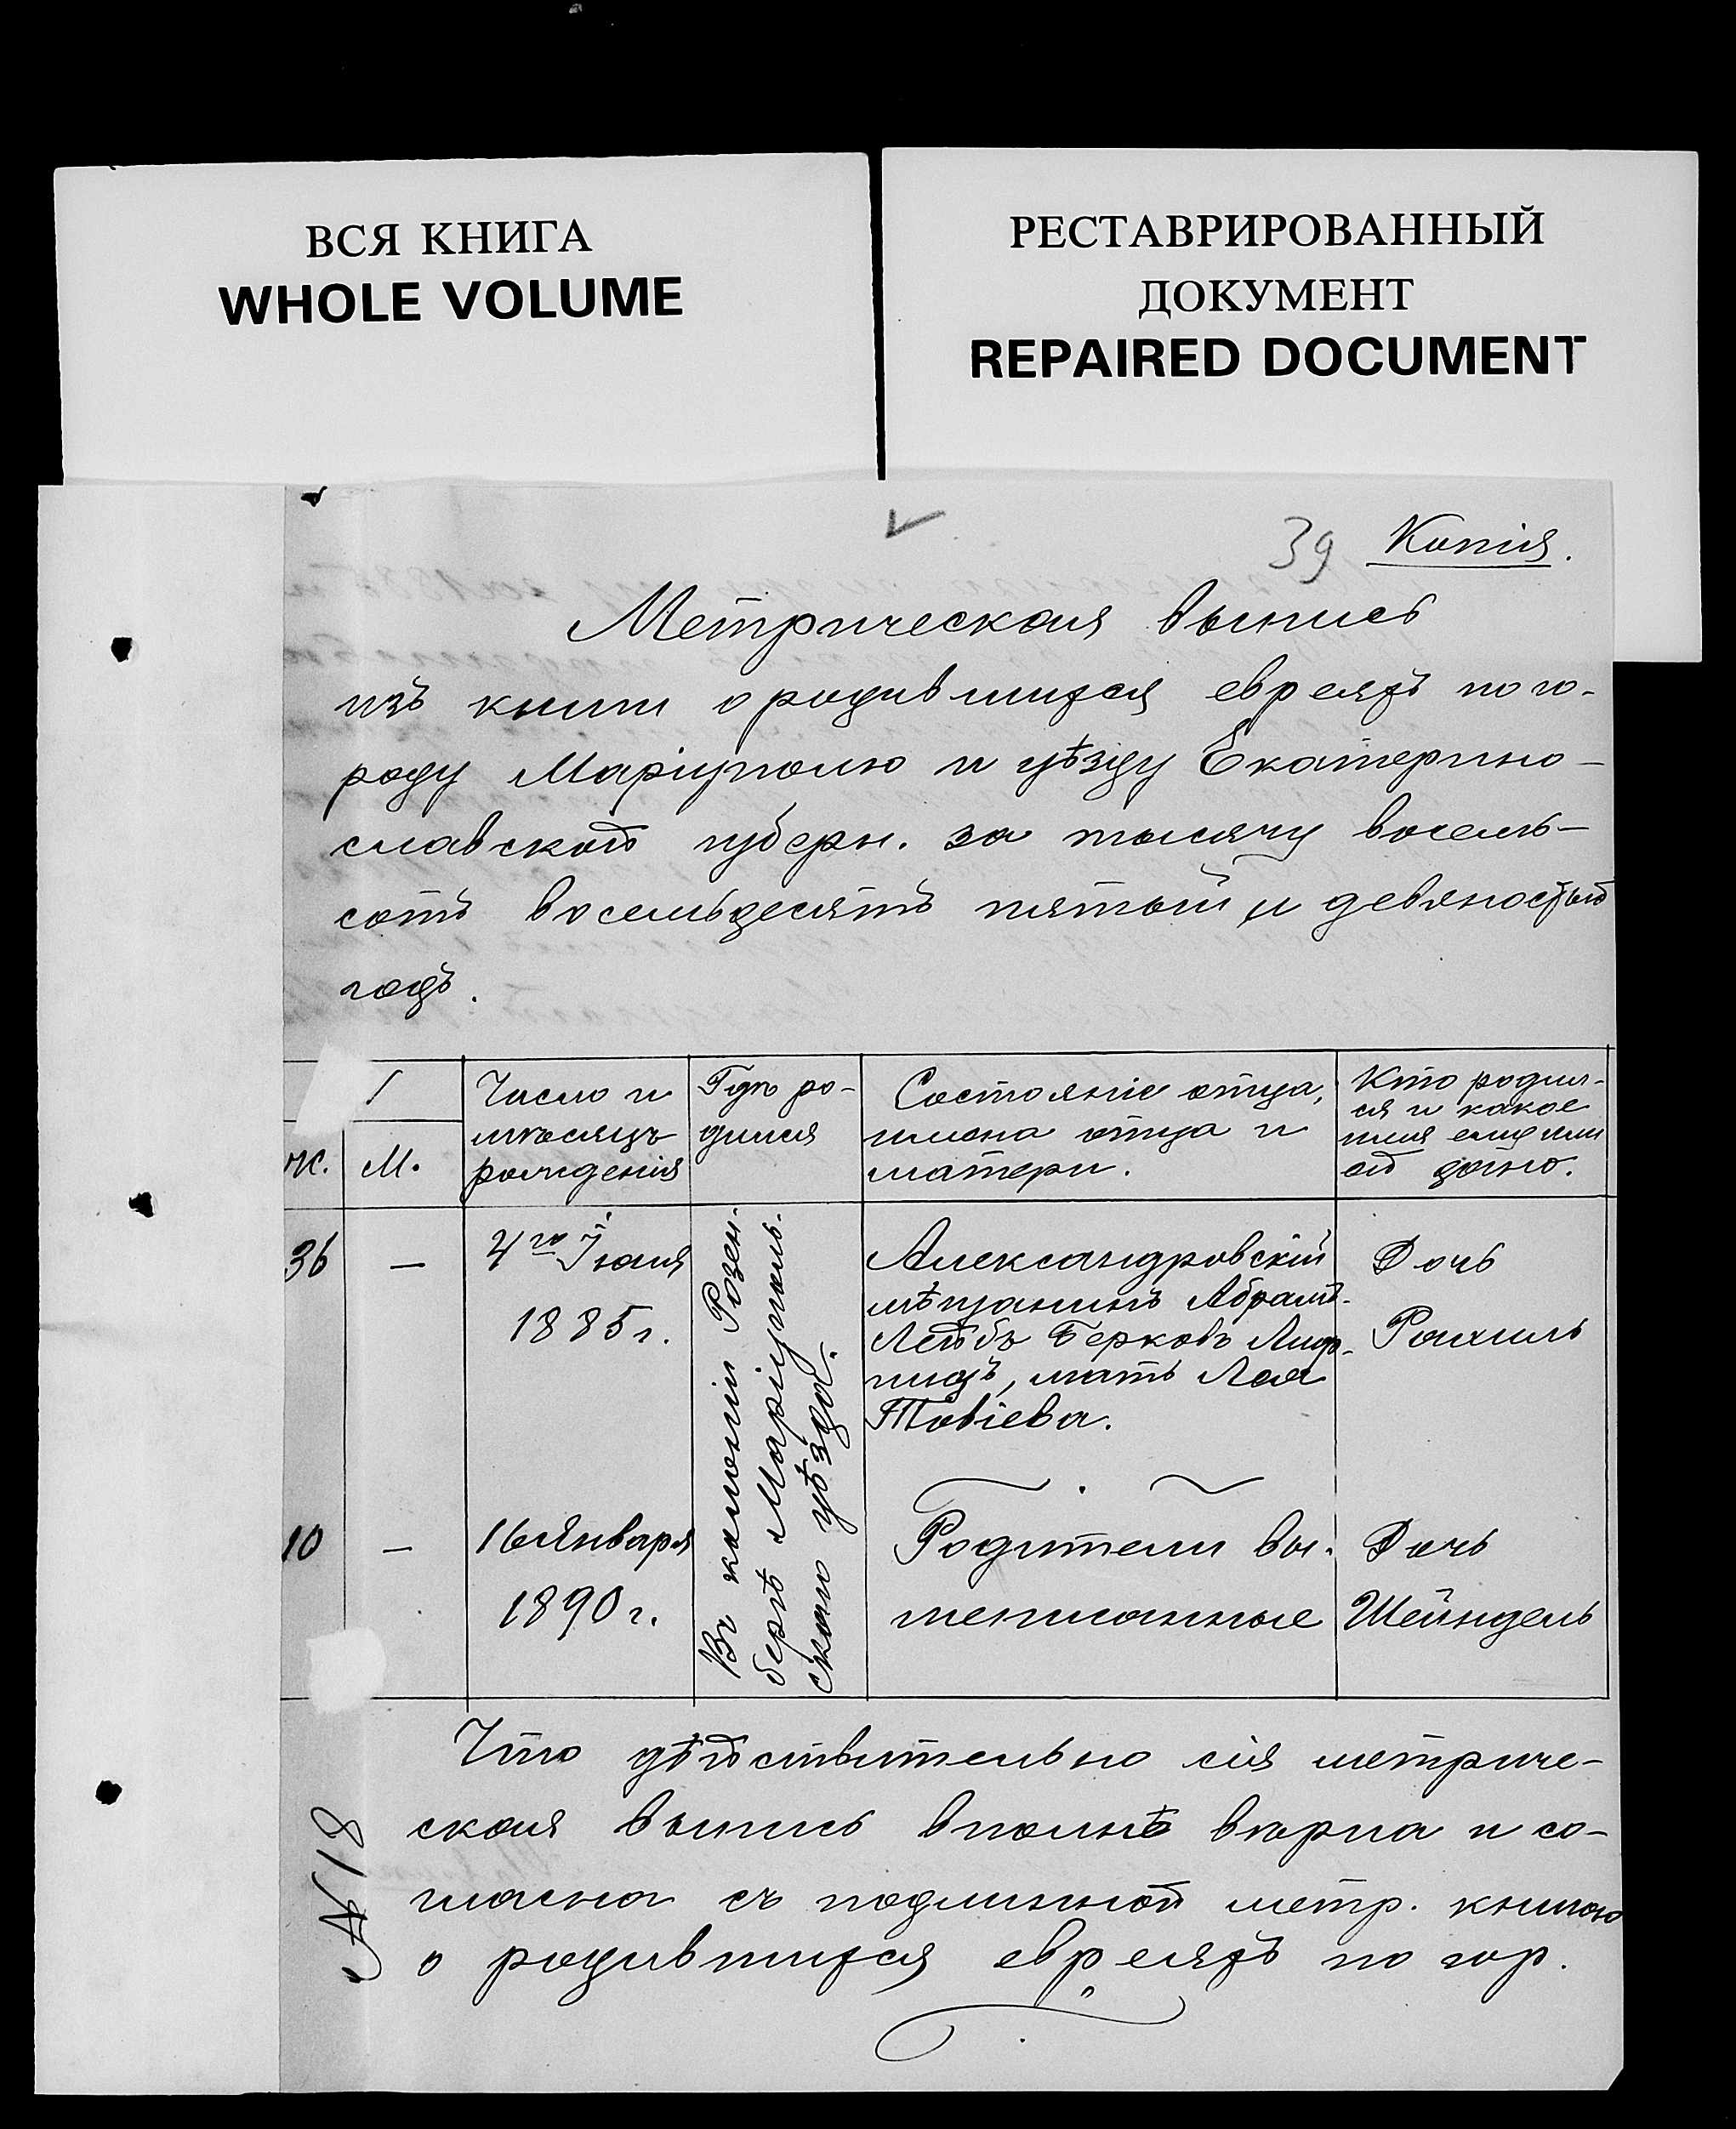 ВСЯ КНИГА
WHOLE VOLUME
РЕСТАВРИРОВАННЫЙ
ДОКУМЕНТ
REPAIRED DOCUMENT
39 Копія.
Метрическая выпись
изъ книги о родившихся евреяхъ по го-
роду Маріуполю и уѣзду Екатерино-
славской губерн. за тысячу восемь-
сотъ восемьдесятъ пятый и девяностый
годъ.
Ж.
М.
Число и
мѣсяцъ
рожденія
Гдѣ ро-
дился
Состояніе отца,
имена отца и
матери.
Кто родил-
ся и какое
имя ему или
ей дано.
36
—
4го Іюля
1885 г.
Въ колоніи Розен-
бергѣ Маріуполь-
скаго уѣзда.
Александровскій
мѣщанинъ Абрамъ-
Лейбъ Берковъ Лиф-
шицъ, мать Лея
Товіева.
Дочь
Рахиль
10
—
16 Января
1890 г.
Родители вы-
шеписанные
Дочь
Шейндель
Что дѣйствительно сія метриче-
ская выпись вполнѣ вѣрна и со-
гласна съ подлинной метр. книгою
о родившихся евреяхъ по гор.
№ 18